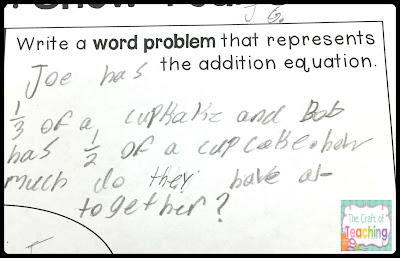 Write a word problem that represents
the addition equation.
Joe has
1/3 of a cupkake and Bob
has 1/2 of a cupcake. how
much do they have al-
together?
The Craft of
Teaching